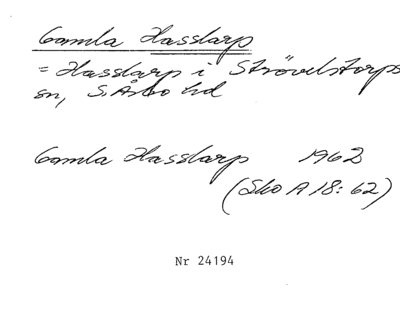 Gamla Hasslarp
= Hasslarp i Strövelstorps
sn, S. Åsbo hd
Gamla Hasslarp 1962
(Sko A 18: 62)
Nr 24194